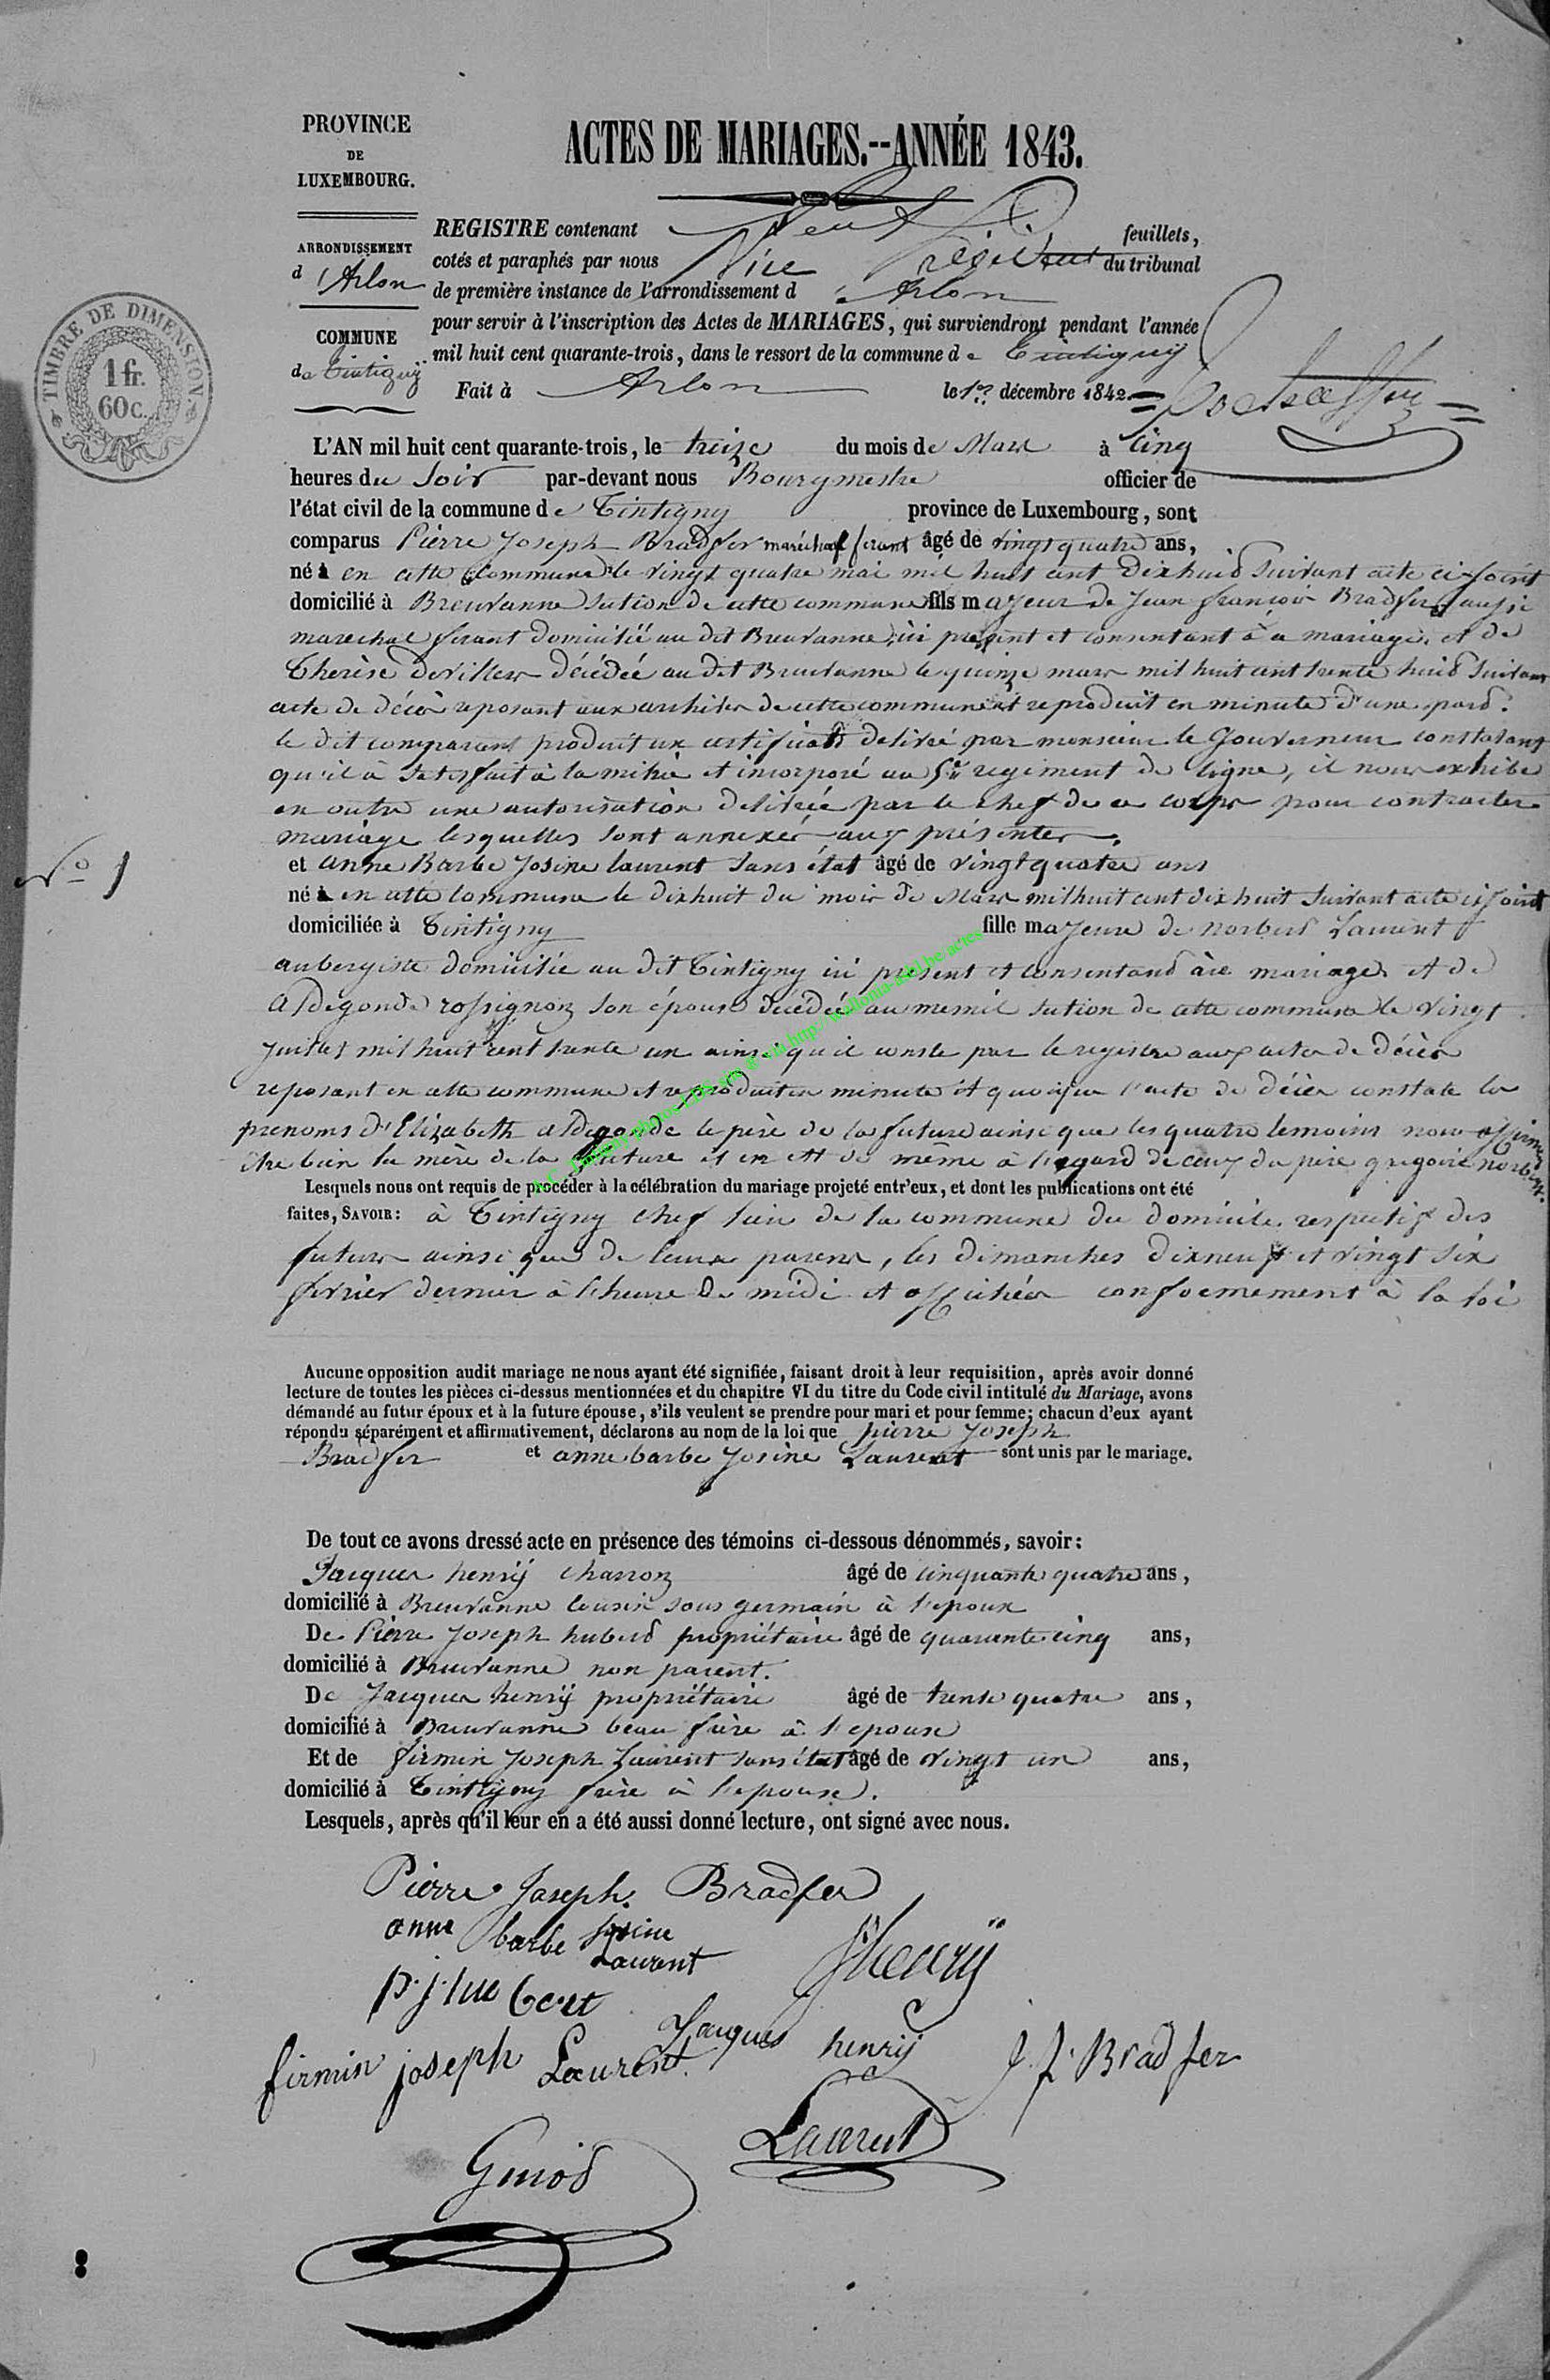 PROVINCE
DE
LUXEMBOURG.
ACTES DE MARIAGES.--ANNÉE 1843.
ARRONDISSEMENT
d'Arlon
COMMUNE
de Tintigny
TIMBRE DE DIMENSION
1 fr.
60 c.
REGISTRE contenant Neuf feuillets,
cotés et paraphés par nous Vice Président du tribunal
de première instance de l'arrondissement d'Arlon
pour servir à l'inscription des Actes de MARIAGES, qui surviendront pendant l'année
mil huit cent quarante-trois, dans le ressort de la commune de Tintigny
Fait à Arlon le 1er décembre 1842.
L'AN mil huit cent quarante-trois, le treize du mois de Mars à Cinq
heures du Soir par-devant nous Bourgmestre officier de
l'état civil de la commune de Tintigny province de Luxembourg, sont
comparus Pierre Joseph Bradfer maréchal ferant âgé de vingt quatre ans,
né à en cette Commune le vingt quatre mai mil huit cent Dixhuit suivant acte ci-joint
domicilié à Breuvanne section de cette commune fils majeur de Jean françois Bradfer aussi
marechal ferant domicilié au dit Breuvanne, ici present et consentant à ce mariage, et de
Therèse deviller décédée au dit Breuvanne le quinze mars mil huit cent trente huit suivant
acte de décès reposant aux archives de cette commune et reproduit en minute d'une part.
le dit comparant produit un certificat delivré par monsieur le Gouverneur constatant
qu'il à satisfait à la milice et incorporé au 5e regiment de ligne, il nous exhibe
en outre une autorisation delivrée par le chef de ce corps pour contracter
mariage lesquelles sont annexés aux présentes.
N° 1
et anne Barbe Josine laurent sans état âgé de vingt quatre ans
né à en cette Commune le dixhuit du mois de Mars mil huit cent dix huit suivant acte ci joint
domiciliée à Tintigny fille majeure de norbert Laurent
aubergiste domicilié au dit Tintigny ici present et consentant à ce mariage et de
aldegonde rossignon son épouse décédée au mesnil section de cette commune le vingt
Juillet mil huit cent trente un ainsi qu'il conste par le registre aux actes de décès
reposant en cette commune et reproduit en minute et quoique l'acte de décès constate les
prenoms d'Elizabeth aldegonde le père de la future ainsi que les quatre temoins nous affirment
être bien la mère de la future et en est de même à l'egard de ceux du père gregoire norbert.
Lesquels nous ont requis de procéder à la célébration du mariage projeté entr'eux, et dont les publications ont été
faites, SAVOIR: à Tintigny chef lieu de la commune du domicile respectif des
futurs ainsi que de leurs parens, les dimanches dixneuf et vingt six
février dernier à l'heure de midi et affichées conformement à la loi
Aucune opposition audit mariage ne nous ayant été signifiée, faisant droit à leur requisition, après avoir donné
lecture de toutes les pièces ci-dessus mentionnées et du chapitre VI du titre du Code civil intitulé du Mariage, avons
démandé au futur époux et à la future épouse, s'ils veulent se prendre pour mari et pour femme; chacun d'eux ayant
répondu séparément et affirmativement, déclarons au nom de la loi que pierre Joseph
Bradfer et anne barbe Josine Laurent sont unis par le mariage.
De tout ce avons dressé acte en présence des témoins ci-dessous dénommés, savoir:
Jacques henrÿ charron âgé de cinquante quatre ans,
domicilié à Breuvanne cousin sous germain à l'epoux
De Pierre Joseph hubert propriétaire âgé de quarante cinq ans,
domicilié à Breuvanne non parent.
De Jacques henrÿ propriétaire âgé de trente quatre ans,
domicilié à Breuvanne beau frère à l'epoux
Et de firmin Joseph Laurent sans état âgé de vingt un ans,
domicilié à Tintigny frère à l'epouse.
Lesquels, après qu'il leur en a été aussi donné lecture, ont signé avec nous.
Pierre Joseph Bradfer
anne barbe Josine
Laurent
J henrÿ
p. j. hubert
Jacques henrÿ
firmin joseph Laurent
J. f. Bradfer
Laurent
Guiot